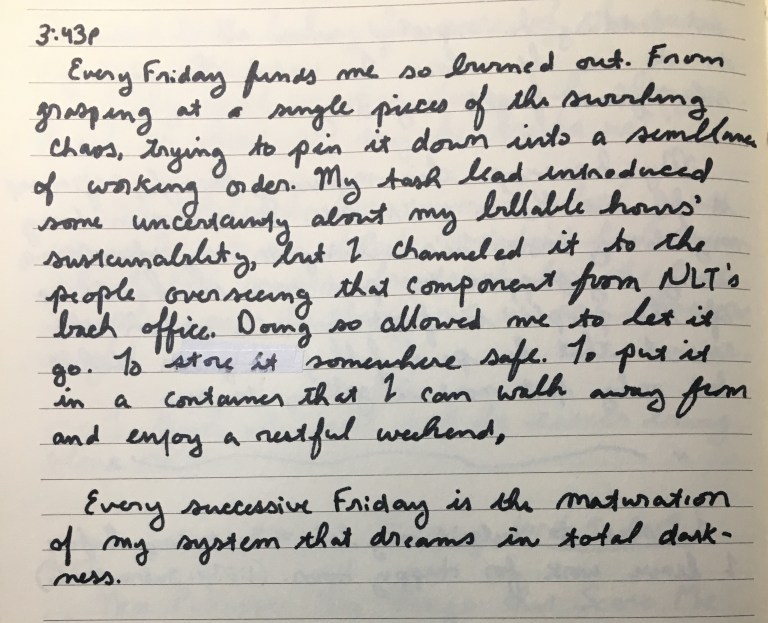 3:43p
Every Friday finds me so burned out. From
grasping at a single pieces of the swirling
chaos, trying to pin it down into a semblance
of working order. My task lead introduced
some uncertainty about my billable hours'
sustainability, but I channeled it to the
people overseeing that component from NLT's
back office. Doing so allowed me to let it
go. To store it somewhere safe. To put it
in a container that I can walk away from
and enjoy a restful weekend,
Every successive Friday is the maturation
of my system that dreams in total dark-
ness.